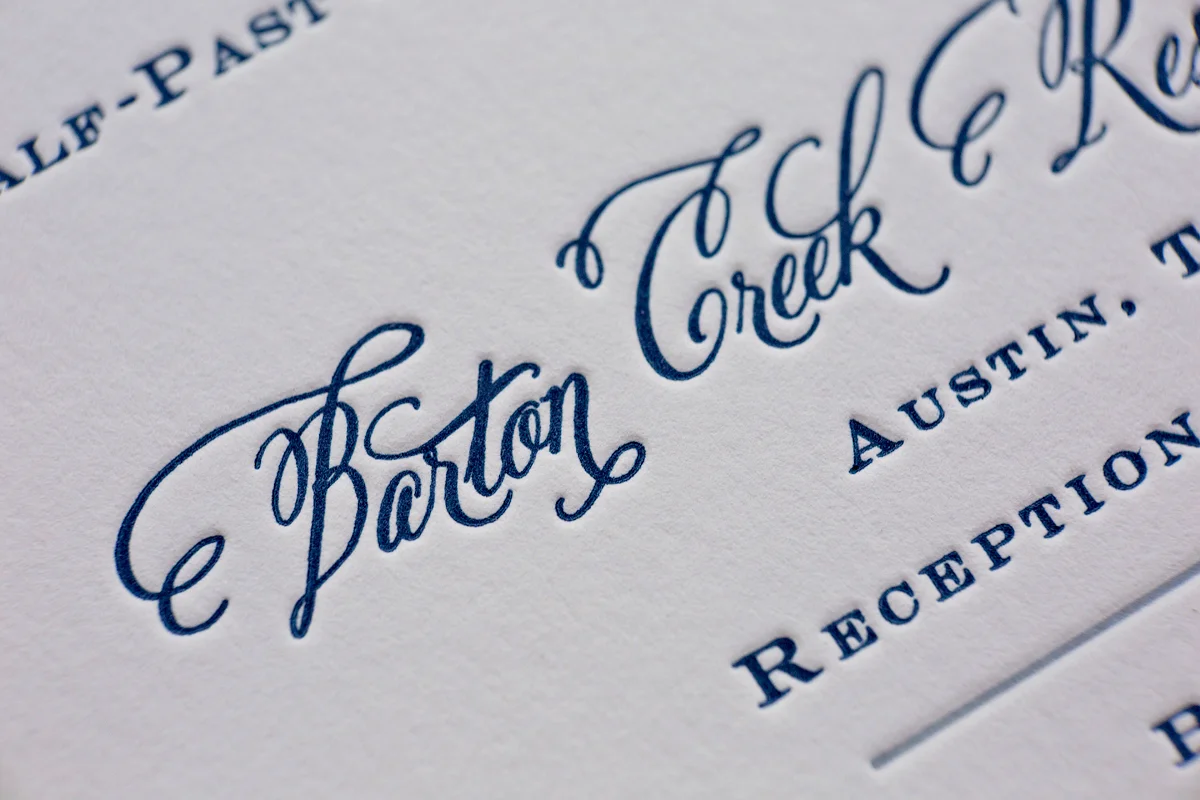 alf-Past
Barton Creek Res
Austin, T
Reception